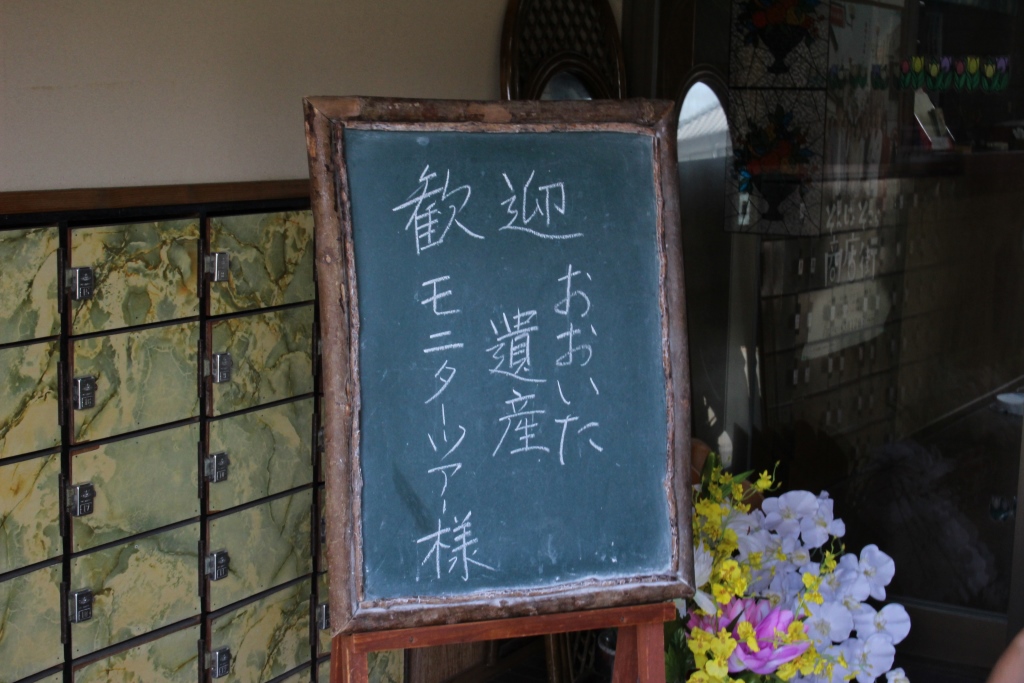 歓迎
おおいた
遺産
モニターツアー様